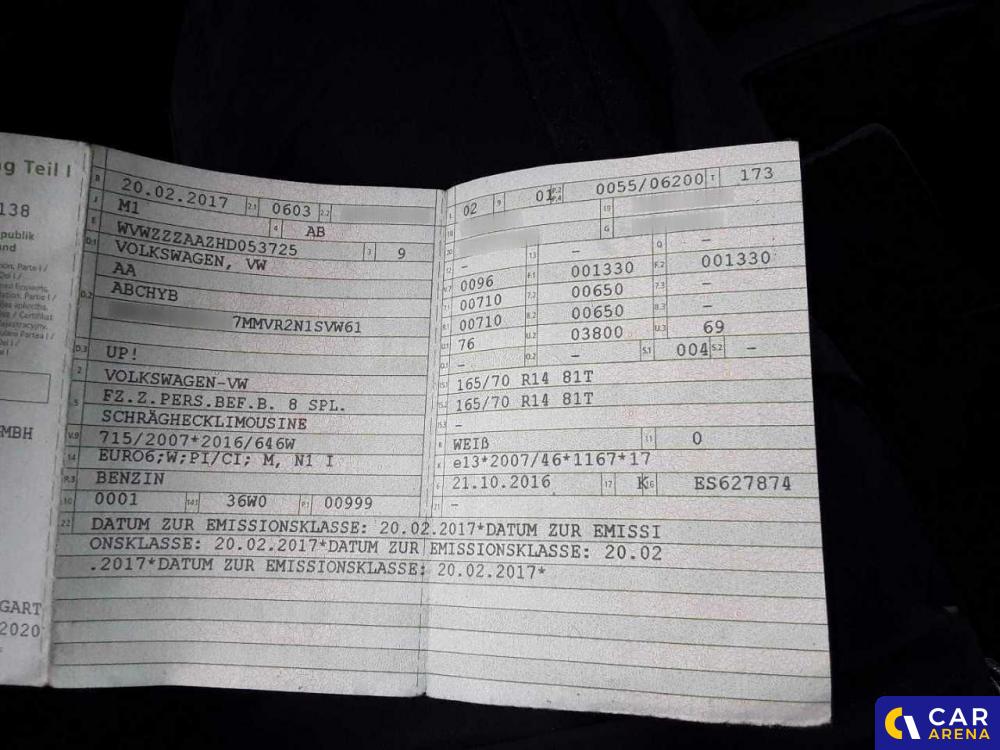 g Teil I
138
publik
nd
MBH
GART
2020
B 20.02.2017 2.1 0603 2.2
J M1 4 AB
E WVWZZZAAZHD053725 3 9
D.1 VOLKSWAGEN, VW
AA
D.2 ABCHYB
7MMVR2N1SVW61
D.3 UP!
2 VOLKSWAGEN-VW
5 FZ.Z.PERS.BEF.B. 8 SPL.
SCHRÄGHECKLIMOUSINE
V.9 715/2007*2016/646W
14 EURO6;W;PI/CI; M, N1 I
P.3 BENZIN
10 0001 14.1 36W0 P.1 00999
22 DATUM ZUR EMISSIONSKLASSE: 20.02.2017*DATUM ZUR EMISSI
ONSKLASSE: 20.02.2017*DATUM ZUR EMISSIONSKLASSE: 20.02
.2017*DATUM ZUR EMISSIONSKLASSE: 20.02.2017*
L 02 9 01 P.2 P.4 0055/06200 T 173
18 19
20 G
12 - 13 - Q -
V.7 0096 F.1 001330 F.2 001330
7.1 00710 7.2 00650 7.3 -
8.1 00710 8.2 00650 8.3 -
U.1 76 U.2 03800 U.3 69
O.1 - O.2 - S.1 004 S.2 -
15.1 165/70 R14 81T
15.2 165/70 R14 81T
15.3 -
R WEIß 11 0
K e13*2007/46*1167*17
6 21.10.2016 17 K 16 ES627874
21 -
CAR
ARENA